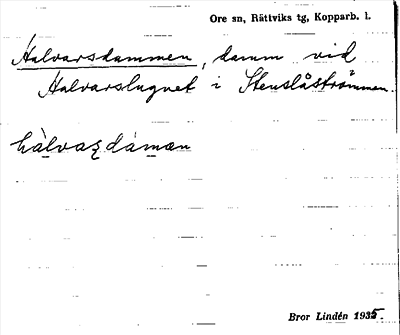 Ore sn, Rättviks tg, Kopparb. l.
Halvarsdammen, damm vid
Halvarslugnet i Stenslåströmmen.
hàlvaʂdáman
Bror Lindén 1935.